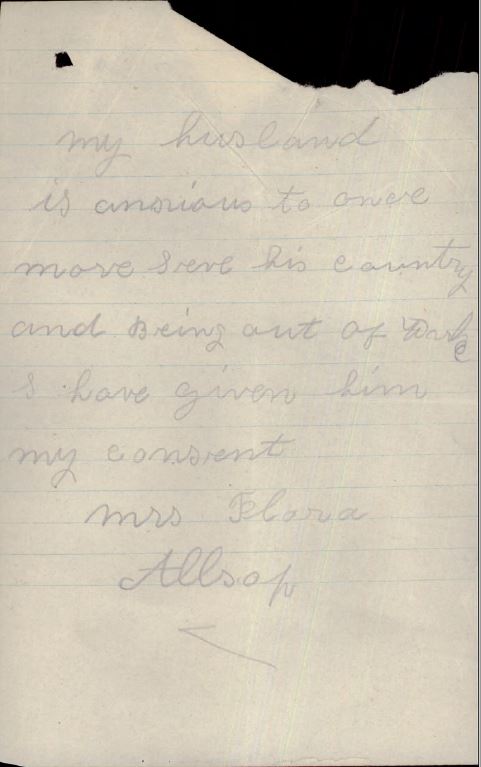 my husband
is anxious to once
more serve his country
and Being out of Work
I have given him
my consent
mrs Flora
Allsop